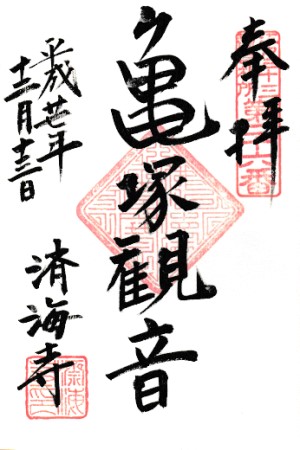 奉拝
亀塚観音
平成廿年
十二月十二日
済海寺